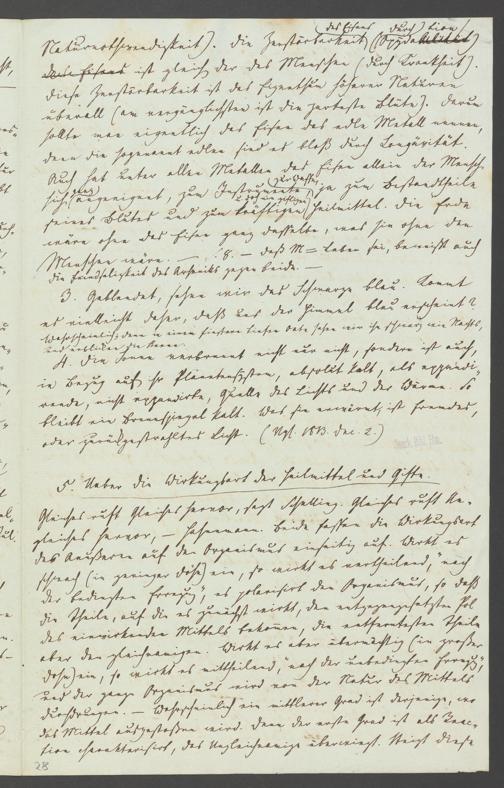 des Eisens durch tion
Naturnothwendigkeit). Die Zerstörbarkeit (Oxydabilität)
des Eisens ist gleich der des Menschen (durch Krankheit).
Diese Zerstörbarkeit ist das Eigenthum höherer Naturen
überall (am vergänglichsten ist die zarteste Blüte). Darum
sollte man eigentlich das Eisen das edle Metall nennen,
denn die sogenannt edlen sind es bloß durch Longävität.
Auch hat unter allen Metallen das Eisen allein der Mensch
sich angeeignet, zum Instrumente, ja zum Bestandtheile
seines Blutes und zum kräftigen Heilmittel. Die Erde
wäre ohne das Eisen ganz dasselbe, was sie ohne den
Menschen wäre. — 8. — daß M = Leben sei, beweist auch
die Feindseligkeit des Arseniks gegen beide. —
3. Geblendet, sehen wir das Schwarze blau. Kommt
es vielleicht daher, daß uns der Himmel blau erscheint?
Wahrscheinlich; denn in einem finstern tiefen Orte sehen wir ihn schwarz wie Nachts,
und erblicken die Sterne.
4. Die Sonne verbrennt nicht nur nicht, sondern ist auch,
in Bezug auf ihr Planetensystem, absolut kalt, als
nicht Quelle des Lichts und der Wärme. So
bleibt ein Brennspiegel kalt. Was sie erwärmt, ist fremdes,
oder zurückgestrahltes Licht. (Vgl. 1813. Dec. 2.)
5. Ueber die Wirkungsart der Heilmittel und Gifte.
Gleiches ruft Gleiches hervor, sagt Schelling. Gleiches ruft Un-
gleiches hervor, — Hahnemann. Beide fassen die Wirkungsart
des Äußern auf den Organismus einseitig auf. Wirkt es
schwach (in geringer Dosis) ein, so wirkt es vertheilend, "nach
der bedingten Erregg", es polarisirt den Organismus, so daß
die Theile, auf die es zunächst wirkt, den entgegengesetzten Pol
des einwirkenden Mittels bekommen, die entferntesten Theile
aber den gleichnamigen. Wirkt es aber übermächtig (in großer
Dosis) ein, so wirkt es mittheilend, "nach der unbedingten Erregg",
und der ganze Organismus wird von der Natur des Mittels
durchdrungen. — Wahrscheinlich ein mittlerer Grad ist derjenige, wo
das Mittel ausgestoßen wird. Denn der erste Grad ist als Reac-
tion charakterisirt, das Ungleichnamige überwiegt. Steigt diese
28